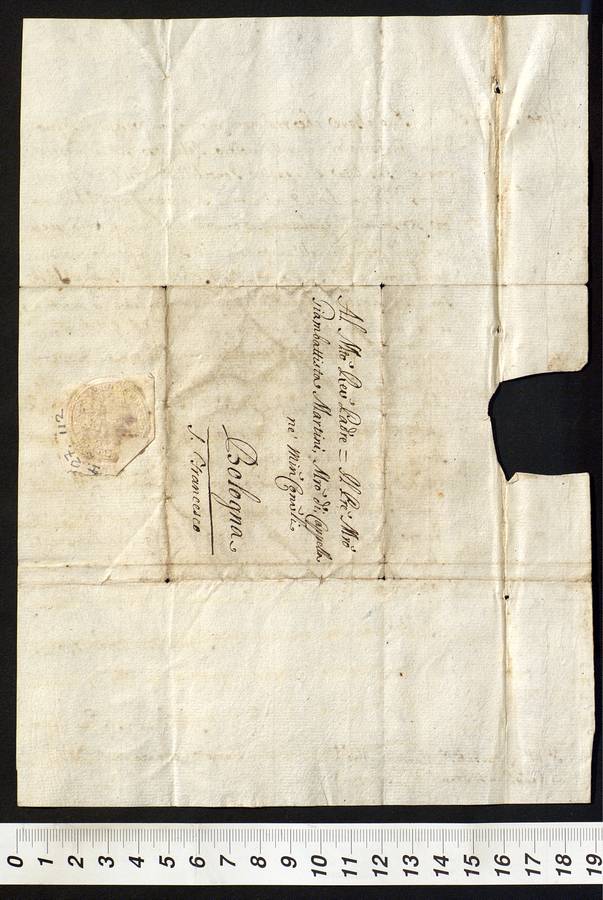 Al Mto Revo Padre = Il Pre Mro
Giambattista Martini, Mro di Cappella
ne Min Convli
Bologna
S. Francesco
112
0 1 2 3 4 5 6 7 8 9 10 11 12 13 14 15 16 17 18 19